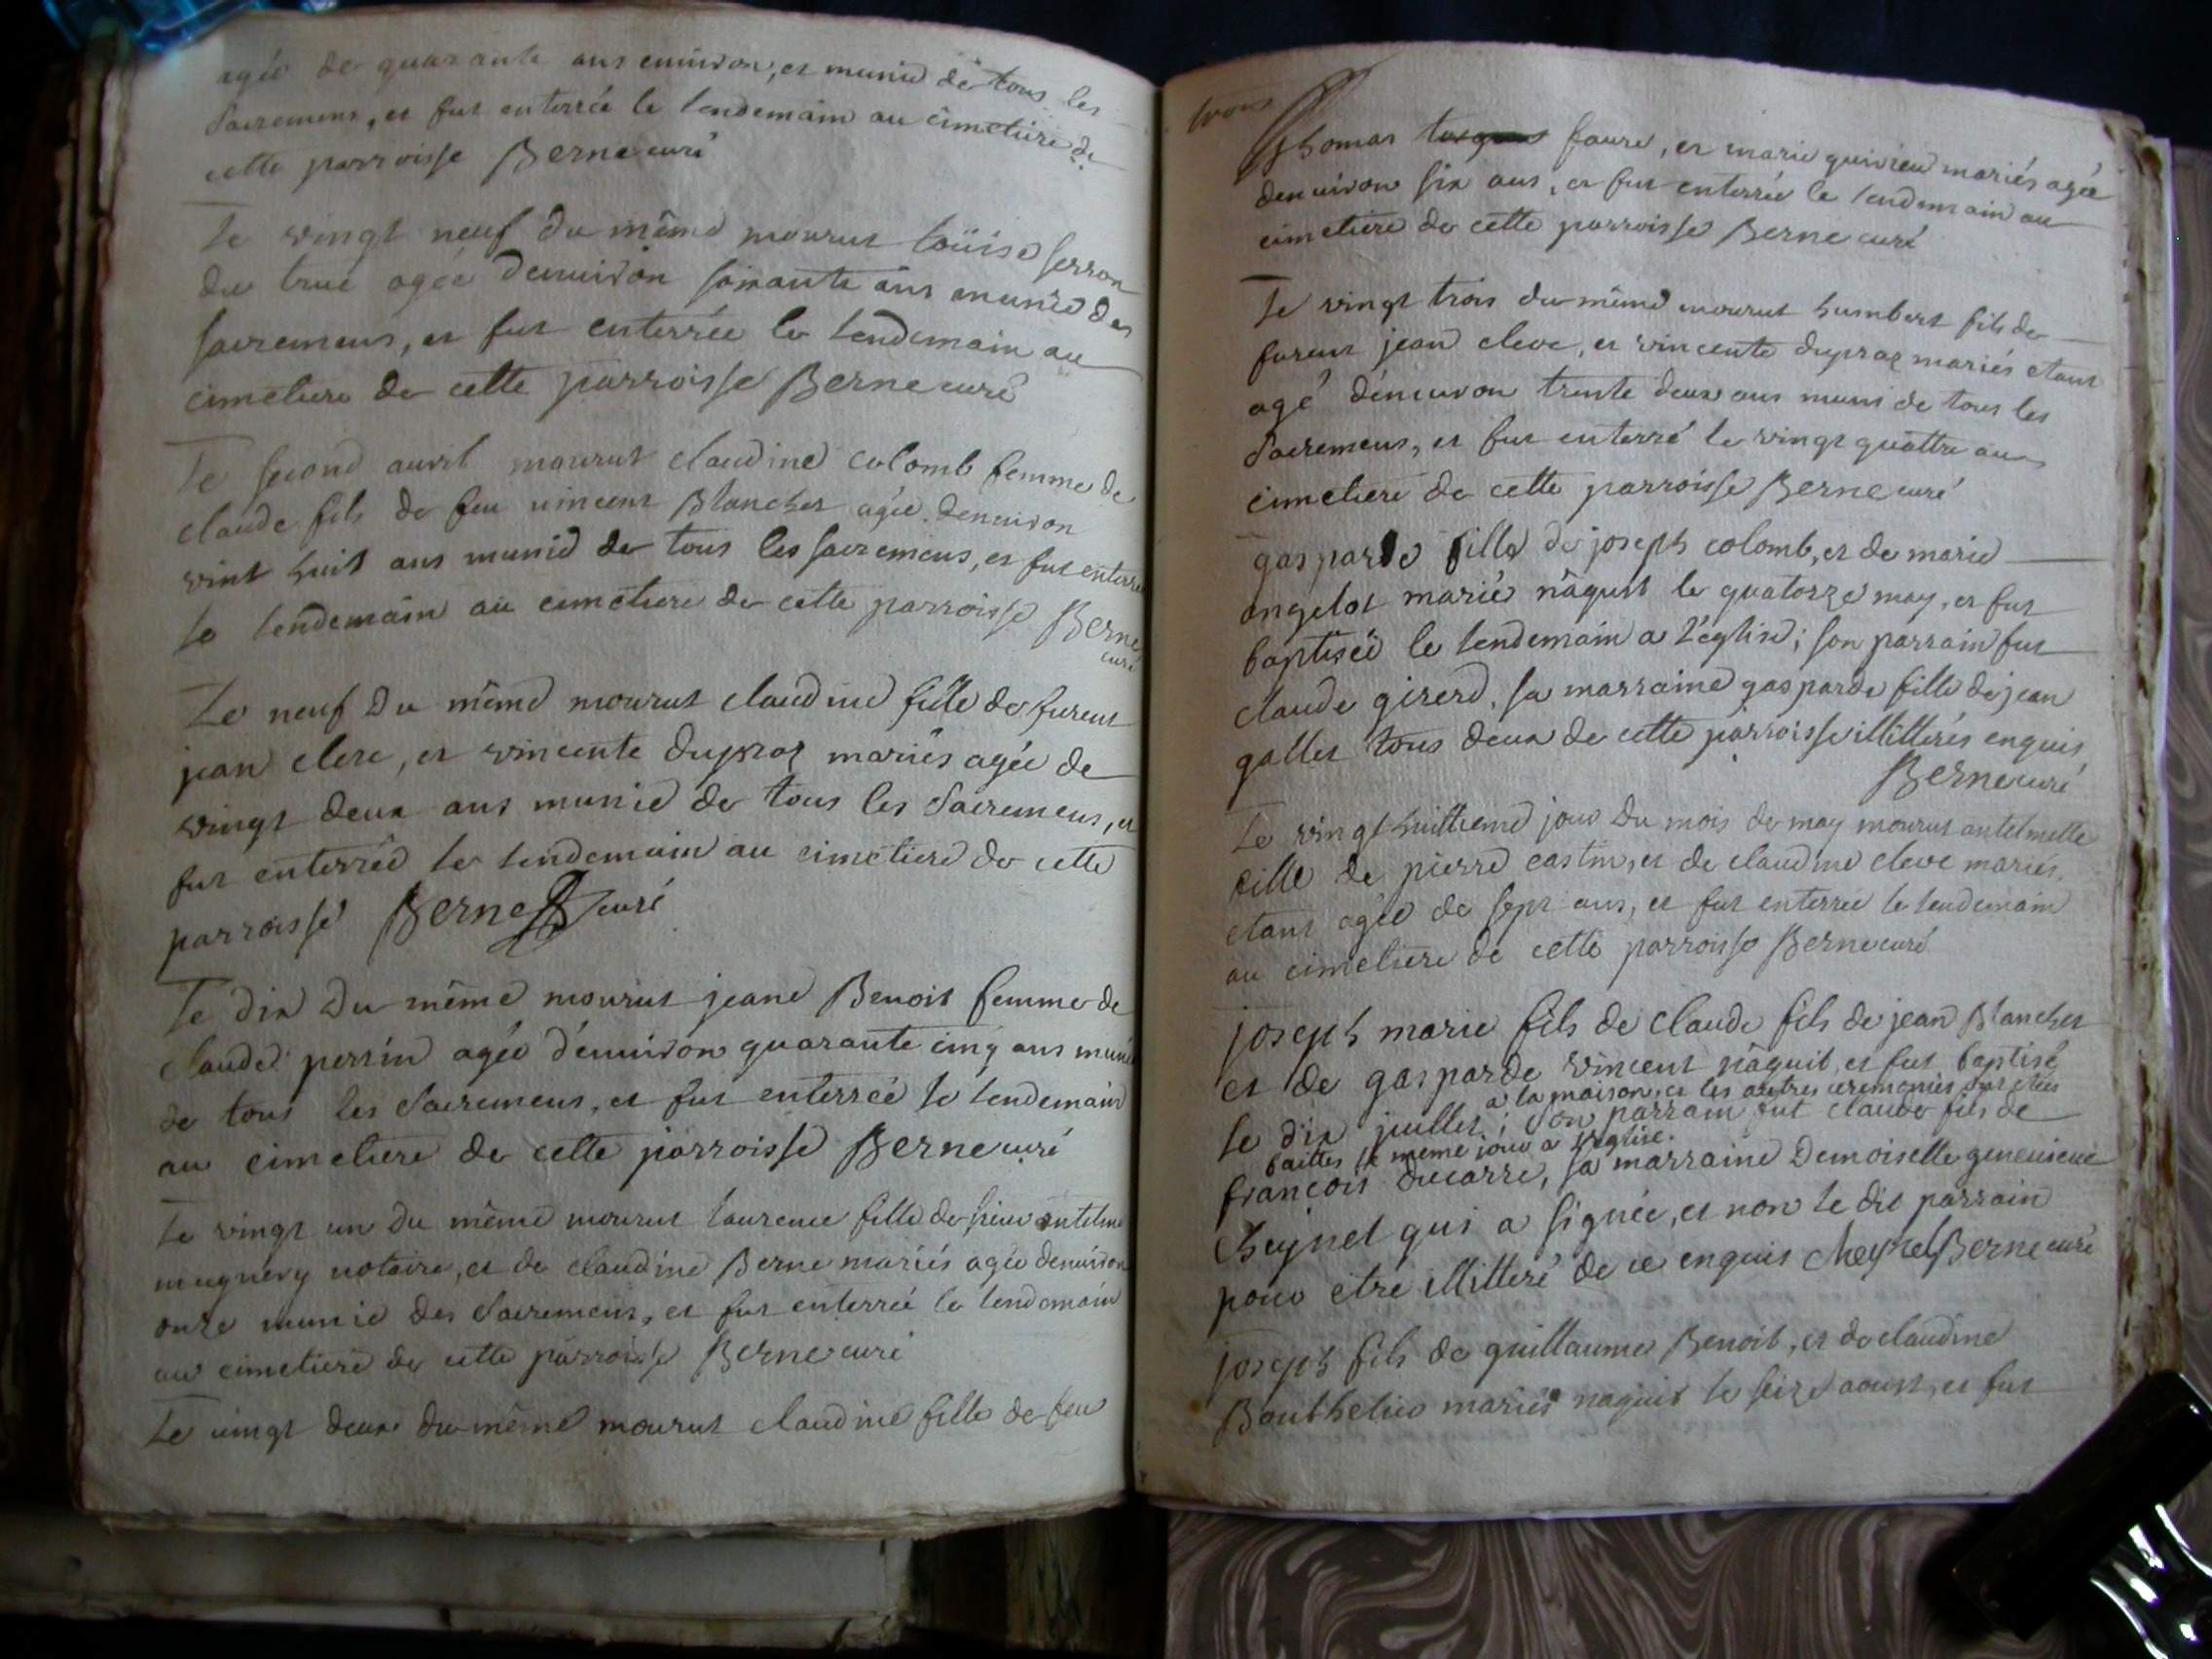 agée de quarante ans environ, et munie de tous les
Sacremens, et fut enterrée le lendemain au cimetiere de
cette parroisse Berne curé
Le vingt neuf du même mourut loüise serron
du truc agée denuiron soixante ans munie des
sacremens, et fut enterrée le lendemain au
cimetiere de cette parroisse Berne curé
Le second auril mourut claudine colomb femme de
claude fils de feu uincent Blanchet agée denuiron
vint huit ans munie de tous les sacremens, et fut enterrée
le lendemain au cimetiere de cette parroisse Berne
curé
Le neuf du même mourut claudine fille de furent
jean clerc, et vincente dupraz mariés agée de
vingt deux ans munie de tous les Sacremens, et
fut enterrée le lendemain au cimetiere de cette
parroisse Berne curé
Le dix du même mourut jeane Benoit femme de
claude perrin agée d'enuiron quarante cinq ans munie
de tous les Sacremens, et fut enterrée le lendemain
au cimetiere de cette parroisse Berne curé
Le vingt un du même mourut laurence fille de sieur antelme
mugnery notaire, et de claudine Berne mariés agée denuiron
onze munie des Sacremens, et fut enterrée le lendemain
au cimetiere de cette parroisse Berne curé
Le uingt deux du même mourut claudine fille de feu
thomas faure, et marie mariés agée
denuiron six ans, et fut enterrée le lendemain au
cimetiere de cette parroisse Berne curé
Le vingt trois du même mourut humbert fils de
furent jean clerc, et vincente dupraz mariés etant
agé d'énuiron trente deux ans muni de tous les
Sacremens, et fut enterré le vingt quattre au
cimetiere de cette parroisse Berne curé
gasparde fille de joseph colomb, et de marie
angelot mariés nâquit le quatorze may, et fut
baptisée le lendemain a l'église; son parrain fut
claude girerd, sa marraine gasparde fille de jean
gallet tous deux de cette parroisse illitterés enquis
Berne curé
Le vingt huittieme jour du mois de may mourut antelmette
fille de pierre castin, et de claudine clerc mariés
etant agée de sept ans, et fut enterrée le lendemain
au cimetiere de cette parroisse Berne curé
joseph marie fils de claude fils de jean Blanchet
et de gasparde vincent nâquit, et fut baptisé
a la maison, et les autres ceremonies ont étées
le dix juillet; son parrain fut claude fils de
faittes le meme jour a l'église.
françois ducarre, sa marraine Demoiselle geneuieue
Cheynel qui a signée, et non le dit parrain
pour etre illitteré de ce enquis cheynel Berne curé
joseph fils de guillaume Benoit, et de claudine
Bouthelier mariés naquit le seize aoust, et fut